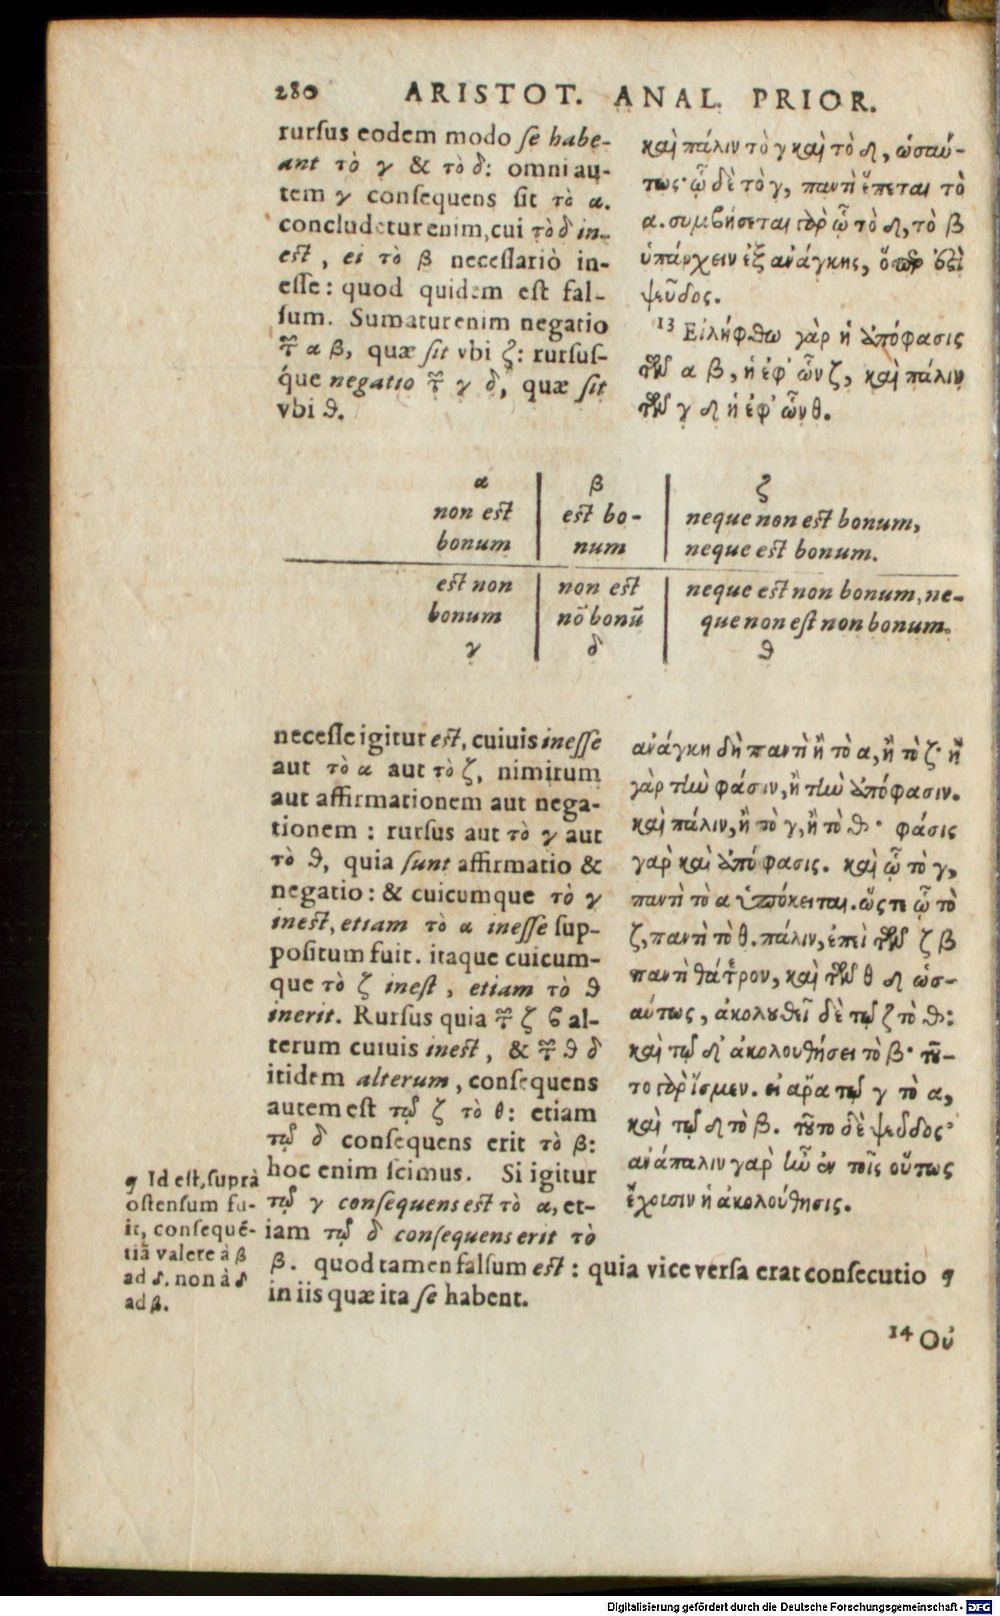 280 ARISTOT. ANAL. PRIOR.
rursus eodem modo se habe-
ant τὸ γ & τὸ δ: omni au-
tem γ consequens sit τὸ α.
concludetur enim, cui τὸ δ in-
est, ei τὸ β necessariò in-
esse: quod quidem est fal-
sum. Sumatur enim negatio
τῶν α β, quæ sit vbi ζ: rursus-
que negatio τῶν γ δ, quæ sit
vbi ϑ.
καὶ πάλιν τὸ γ καὶ τὸ δ, ὡσαύ-
τως· ᾧ δὲ τὸ γ, παντὶ ἕπεται τὸ
α. συμβήσεται γὰρ ᾧ τὸ δ, τὸ β
ὑπάρχειν ἐξ ανάγκης, ὅπερ ἐστὶ
ψεῦδος.
13 Εἰλήφθω γὰρ ἡ ἀπόφασις
τῶν α β, ἡ ἐφ' ὧν ζ, καὶ πάλιν
τῶν γ δ ἡ ἐφ' ὧν θ.
α | β | ζ
non est | est bo- | neque non est bonum,
bonum | num | neque est bonum.
est non | non est | neque est non bonum, ne-
bonum | nō bonū | que non est non bonum.
γ | δ | ϑ
necesse igitur est, cuiuis inesse
aut τὸ α aut τὸ ζ, nimirum
aut affirmationem aut nega-
tionem : rursus aut τὸ γ aut
τὸ ϑ, quia sunt affirmatio &
negatio: & cuicumque τὸ γ
inest, etiam τὸ α inesse sup-
positum fuit. itaque cuicum-
que τὸ ζ inest, etiam τὸ ϑ
inerit. Rursus quia τῶν ζ ϐ al-
terum cuiuis inest, & τῶν ϑ δ
itidem alterum, consequens
autem est τῷ ζ τὸ θ: etiam
τῷ δ consequens erit τὸ β:
hoc enim scimus. Si igitur
τῷ γ consequens est τὸ α, et-
iam τῷ δ consequens erit τὸ
β. quod tamen falsum est : quia vice versa erat consecutio ¶
in iis quæ ita se habent.
ανάγκη δὴ παντὶ ἢ τὸ α, ἢ τὸ ζ· ἢ
γὰρ τὴν φάσιν, ἢ τὴν ἀπόφασιν.
καὶ πάλιν, ἢ τὸ γ, ἢ τὸ ϑ· φάσις
γαρ καὶ ἀπόφασις. καὶ ᾧ τὸ γ,
παντὶ τὸ α ὑπόκειται. ὥςτε ᾧ τὸ
ζ, παντὶ τὸ θ. πάλιν, ἐπεὶ τῶν ζ β
παντὶ θάτερον, καὶ τῶν θ δ ὡσ-
αύτως, ἀκολουθεῖ δὲ τῷ ζ τὸ ϑ:
καὶ τῷ δ ἀκολουθήσει τὸ β· τοῦ-
το γὰρ ἴσμεν. εἰ αρα τῷ γ τὸ α,
καὶ τῷ δ τὸ β. τοῦτο δὲ ψεῦδος·
ἀνάπαλιν γαρ ἦν ἐν τοῖς οὕτως
ἔχουσιν ἡ ἀκολούθησις.
¶ Id est, suprà
ostensum fu-
it, consequē-
tiā valere à β
ad δ, non à δ
ad β.
14 Οὐ
Digitalisierung gefördert durch die Deutsche Forschungsgemeinschaft - DFG